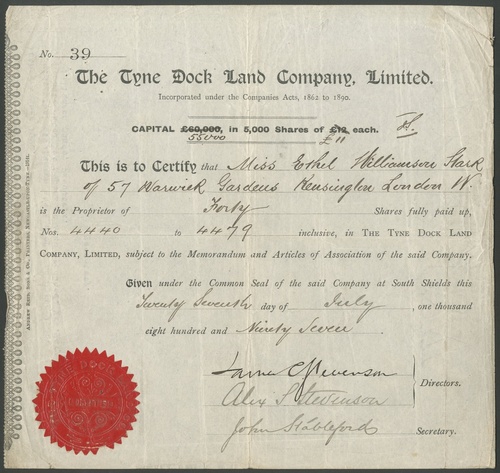 No. 39
The Tyne Dock Land Company, Limited.
Incorporated under the Companies Acts, 1862 to 1890.
CAPITAL £60,000, in 5,000 Shares of £12 each.
55000 £11
This is to Certify that Miss Ethel Williamson Stark
of 57 Warwick Gardens Kensington London W.
is the Proprietor of Forty Shares fully paid up,
Nos. 4440 to 4479 inclusive, in THE TYNE DOCK LAND
COMPANY, LIMITED, subject to the Memorandum and Articles of Association of the said Company.
Given under the Common Seal of the said Company at South Shields this
Twenty Seventh day of July, one thousand
eight hundred and Ninety Seven.
James C Stevenson
Directors.
Alex S Stevenson
John Stableford Secretary.